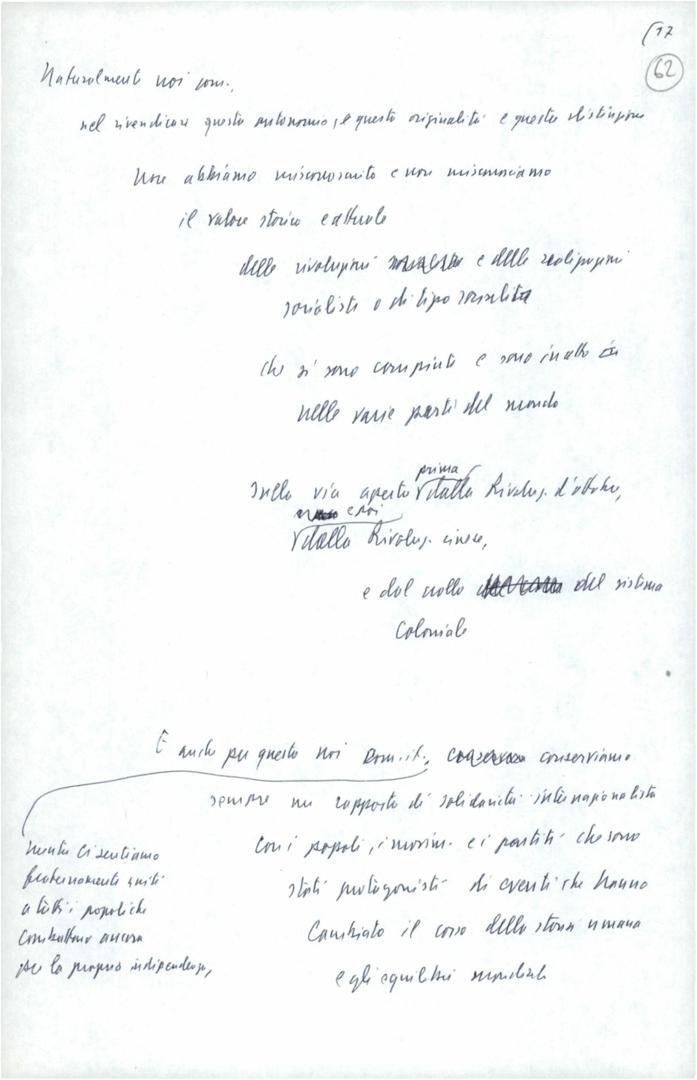 17
62
Naturalmente noi com.,
nel rivendicare questa autonomia, e questa originalità e questa distinzione
non abbiamo misconosciuto e non misconosciamo
il valore storico e attuale
delle rivoluzioni e delle realizzazioni
socialiste o di tipo socialista
che si sono compiute e sono in atto in
nelle varie parti del mondo
sulla via aperta prima dalla Rivoluz. d'ottobre,
e poi
dalla Rivoluz. cinese,
e dal crollo del sistema
coloniale
E anche per questo noi com. it., conserviamo
sempre un rapporto di solidarietà internazionalista
con i popoli, i movim. e i partiti che sono
stati protagonisti di eventi che hanno
cambiato il corso della storia umana
e gli equilibri mondiali
mentre ci sentiamo
fraternamente uniti
a tutti i popoli che
combattono ancora
per la propria indipendenza,